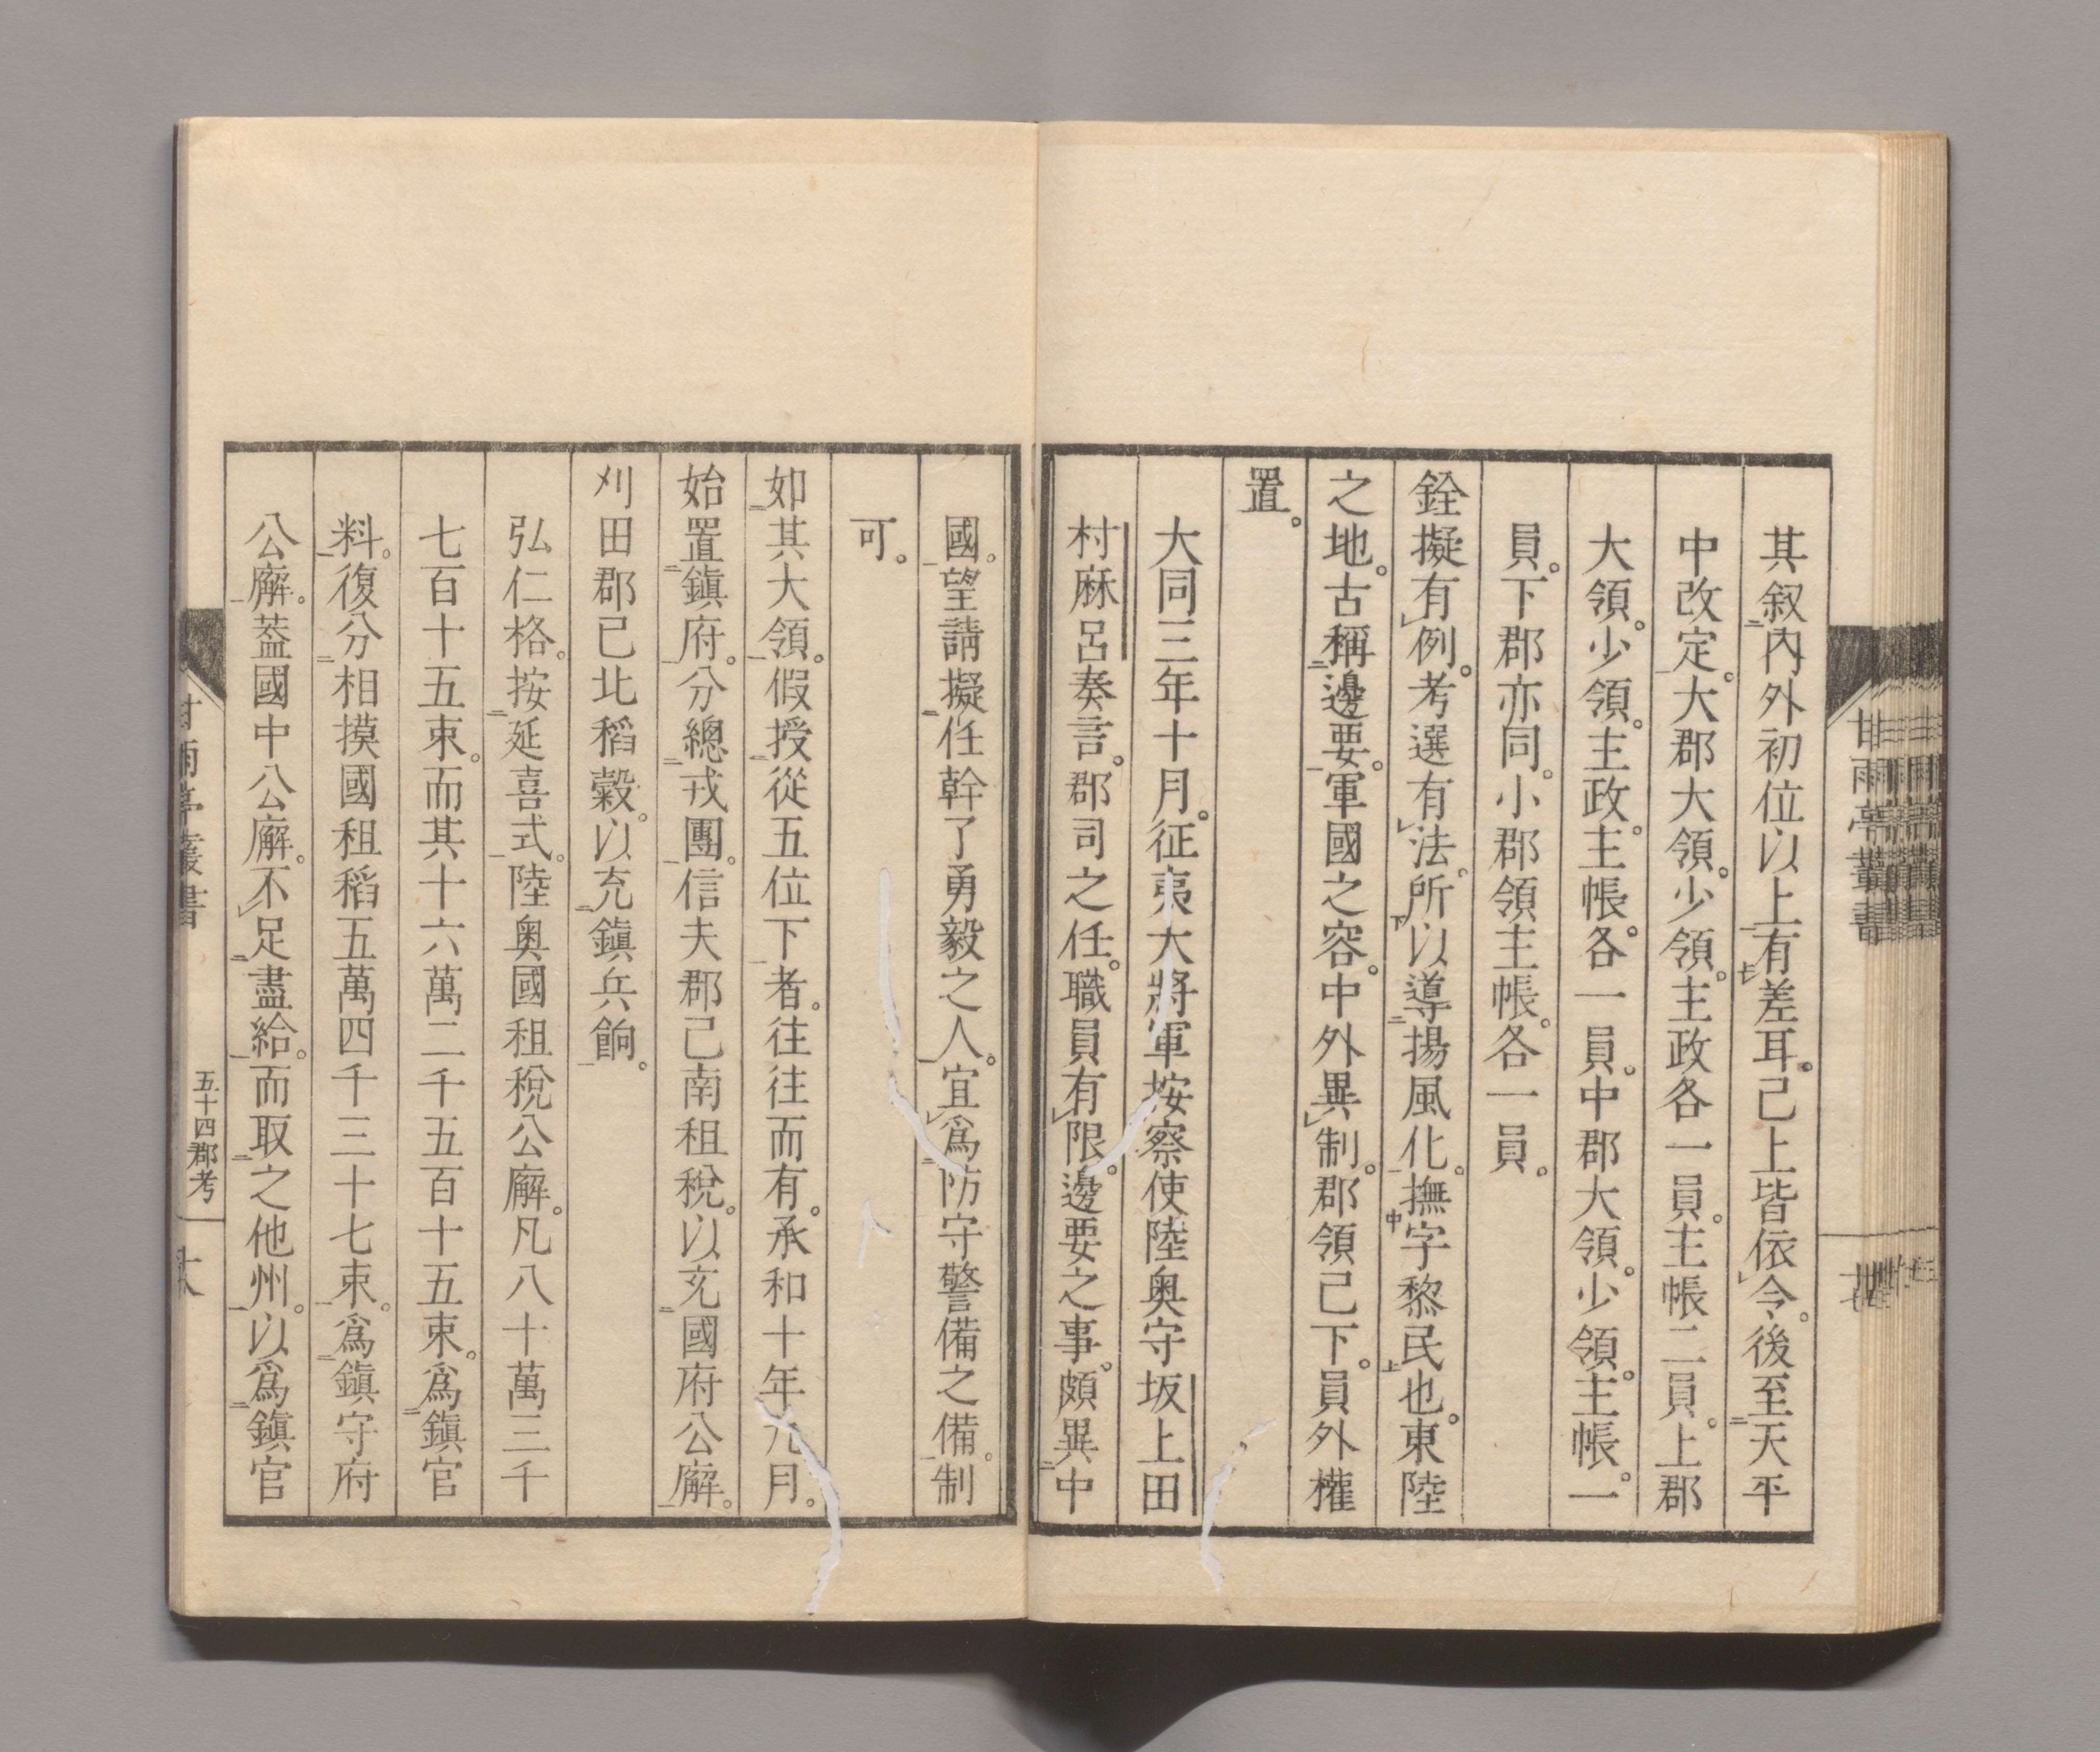 其叙二內外初位以上一有レ差耳。己上皆依レ令。後至二天平
中改定一。大郡大領。少領。主政各一員。主帳二員。上郡
大領。少領。主政。主帳。各一員。中郡大領。少領。主帳。一
員。下郡亦同。小郡領主帳。各一員。
銓擬有レ例。考選有レ法。所下以導二揚風化一。撫中字黎民上也。東陸
之地。古稱二邊要一。軍國之容。中外異レ制。郡領己下。員外權
置。
大同三年十月。征夷大將軍按察使陸奥守坂上田
村麻呂奏言。郡司之任。職員有レ限。邊要之事。頗異二中
國一。望請擬二任幹了勇毅之人一。宜レ爲二防守警備之備一。制
可。
如二其大領一。假二授從五位下一者。往往而有。承和十年九月。
始置二鎭府一。分二總戎團一。信夫郡己南租稅。以充二國府公廨一。
刈田郡己北稻穀。以充二鎭兵餉一。
弘仁格。按二延喜式一。陸奥國租稅公廨。凡八十萬三千
七百十五束。而其十六萬二千五百十五束。爲二鎭官
料一。復分二相摸國租稻五萬四千三十七束一。爲二鎭守府
公廨一。葢國中公廨。不レ足二盡給一。而取二之他州一。以爲二鎭官
甘雨亭叢書
五十四郡考
十八
甘雨亭叢書